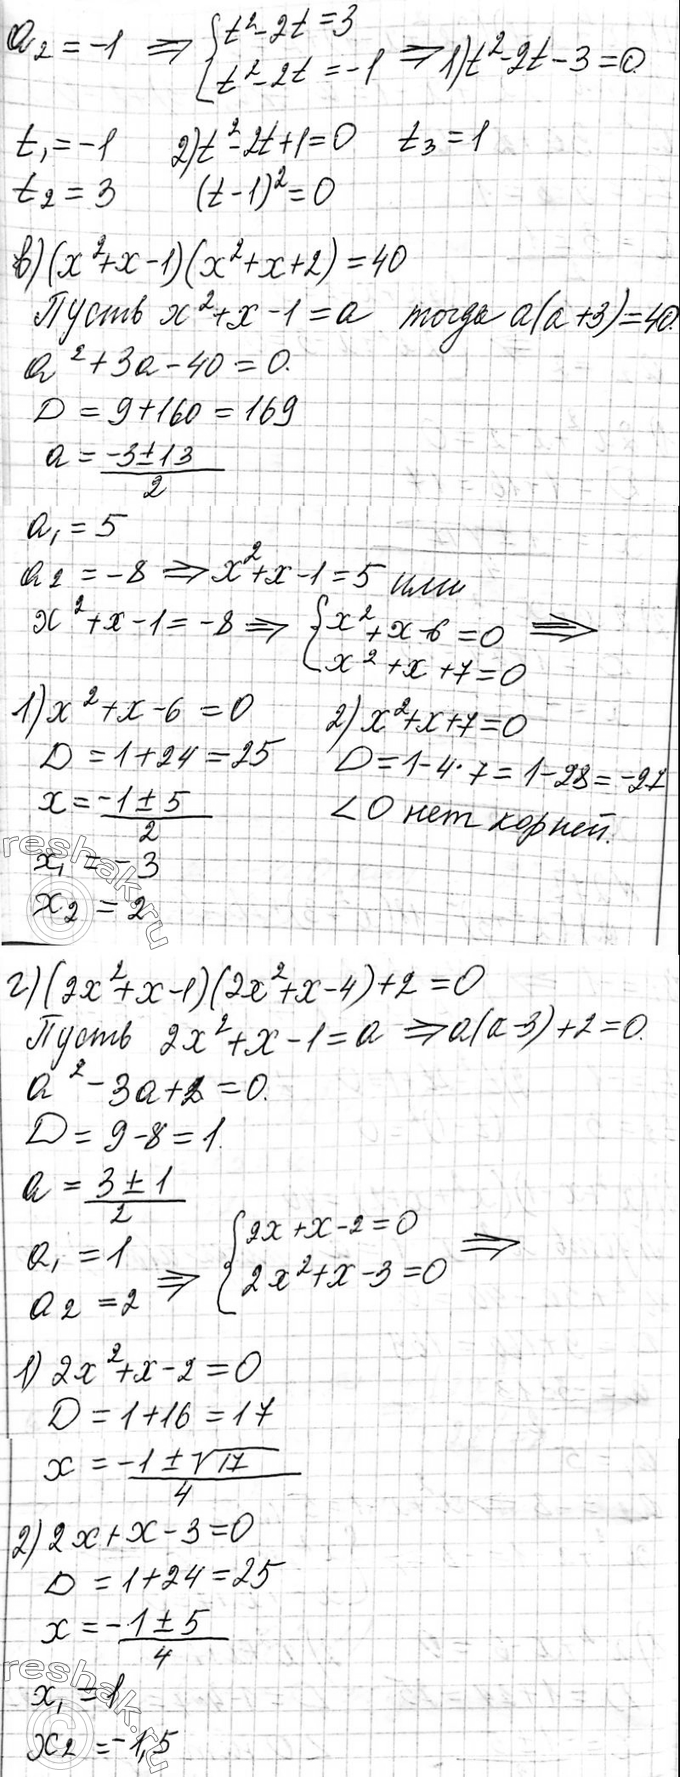 a₂ = -1 ⇒ { t² - 2t = 3
t² - 2t = -1 ⇒ 1) t² - 2t - 3 = 0.
t₁ = -1 2) t² - 2t + 1 = 0 t₃ = 1
t₂ = 3 (t - 1)² = 0
в) (x² + x - 1)(x² + x + 2) = 40
Пусть x² + x - 1 = a тогда a(a + 3) = 40.
a² + 3a - 40 = 0.
D = 9 + 160 = 169
a = (-3 ± 13)/2
a₁ = 5
a₂ = -8 ⇒ x² + x - 1 = 5 или
x² + x - 1 = -8 ⇒ { x² + x - 6 = 0 ⇒
x² + x + 7 = 0
1) x² + x - 6 = 0 2) x² + x + 7 = 0
D = 1 + 24 = 25 D = 1 - 4 · 7 = 1 - 28 = -27
x = (-1 ± 5)/2 < 0 нет корней.
x₁ = -3
x₂ = 2
reshak.ru
©
г) (2x² + x - 1)(2x² + x - 4) + 2 = 0
Пусть 2x² + x - 1 = a ⇒ a(a - 3) + 2 = 0.
a² - 3a + 2 = 0.
D = 9 - 8 = 1.
a = (3 ± 1)/2
a₁ = 1
a₂ = 2 ⇒ { 2x + x - 2 = 0 ⇒
2x² + x - 3 = 0
1) 2x² + x - 2 = 0
D = 1 + 16 = 17
x = (-1 ± √17)/4
2) 2x + x - 3 = 0
D = 1 + 24 = 25
x = (-1 ± 5)/4
x₁ = 1
x₂ = -1,5
reshak.ru
©